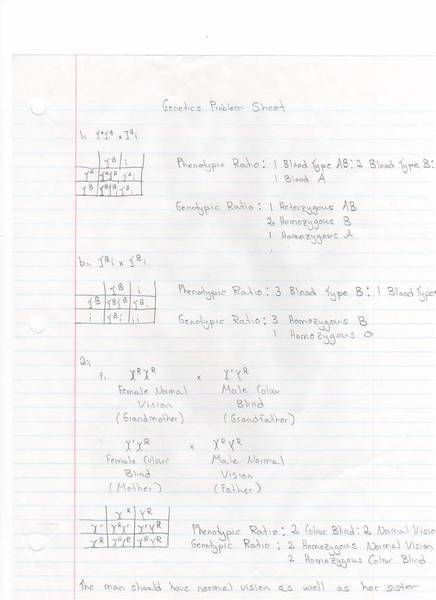 Genetics Problem Sheet
1. IᴬIᴮ x Iᴮi
Iᴮ i
Iᴬ IᴬIᴮ Iᴬi
Iᴮ IᴮIᴮ Iᴮi
Phenotypic Ratio: 1 Blood Type AB: 2 Blood Type B:
1 Blood A
Genotypic Ratio: 1 Heterzygous AB
2 Homozygous B
1 Homozygous A
b. Iᴮi x Iᴮi
Iᴮ i
Iᴮ IᴮIᴮ Iᴮi
i Iᴮi ii
Phenotypic Ratio: 3 Blood Type B: 1 Blood Type
Genotypic Ratio: 3 Homozygous B
1 Homozygous O
2.
XᴿXᴿ x X'Yᴿ
Female Normal Male Colour
Vision Blind
(Grandmother) (Grandfather)
X'Xᴿ x XᴿYᴿ
Female Colour Male Normal
Blind Vision
(Mother) (Father)
Xᴿ Yᴿ
X' XᴿX' X'Yᴿ
Xᴿ XᴿXᴿ XᴿYᴿ
Phenotypic Ratio: 2 Colour Blind: 2 Normal Visio
Genotypic Ratio: 2 Homozygous Normal Vision
2 Homozygous Colour Blind
The man should have normal vision as well as her sister